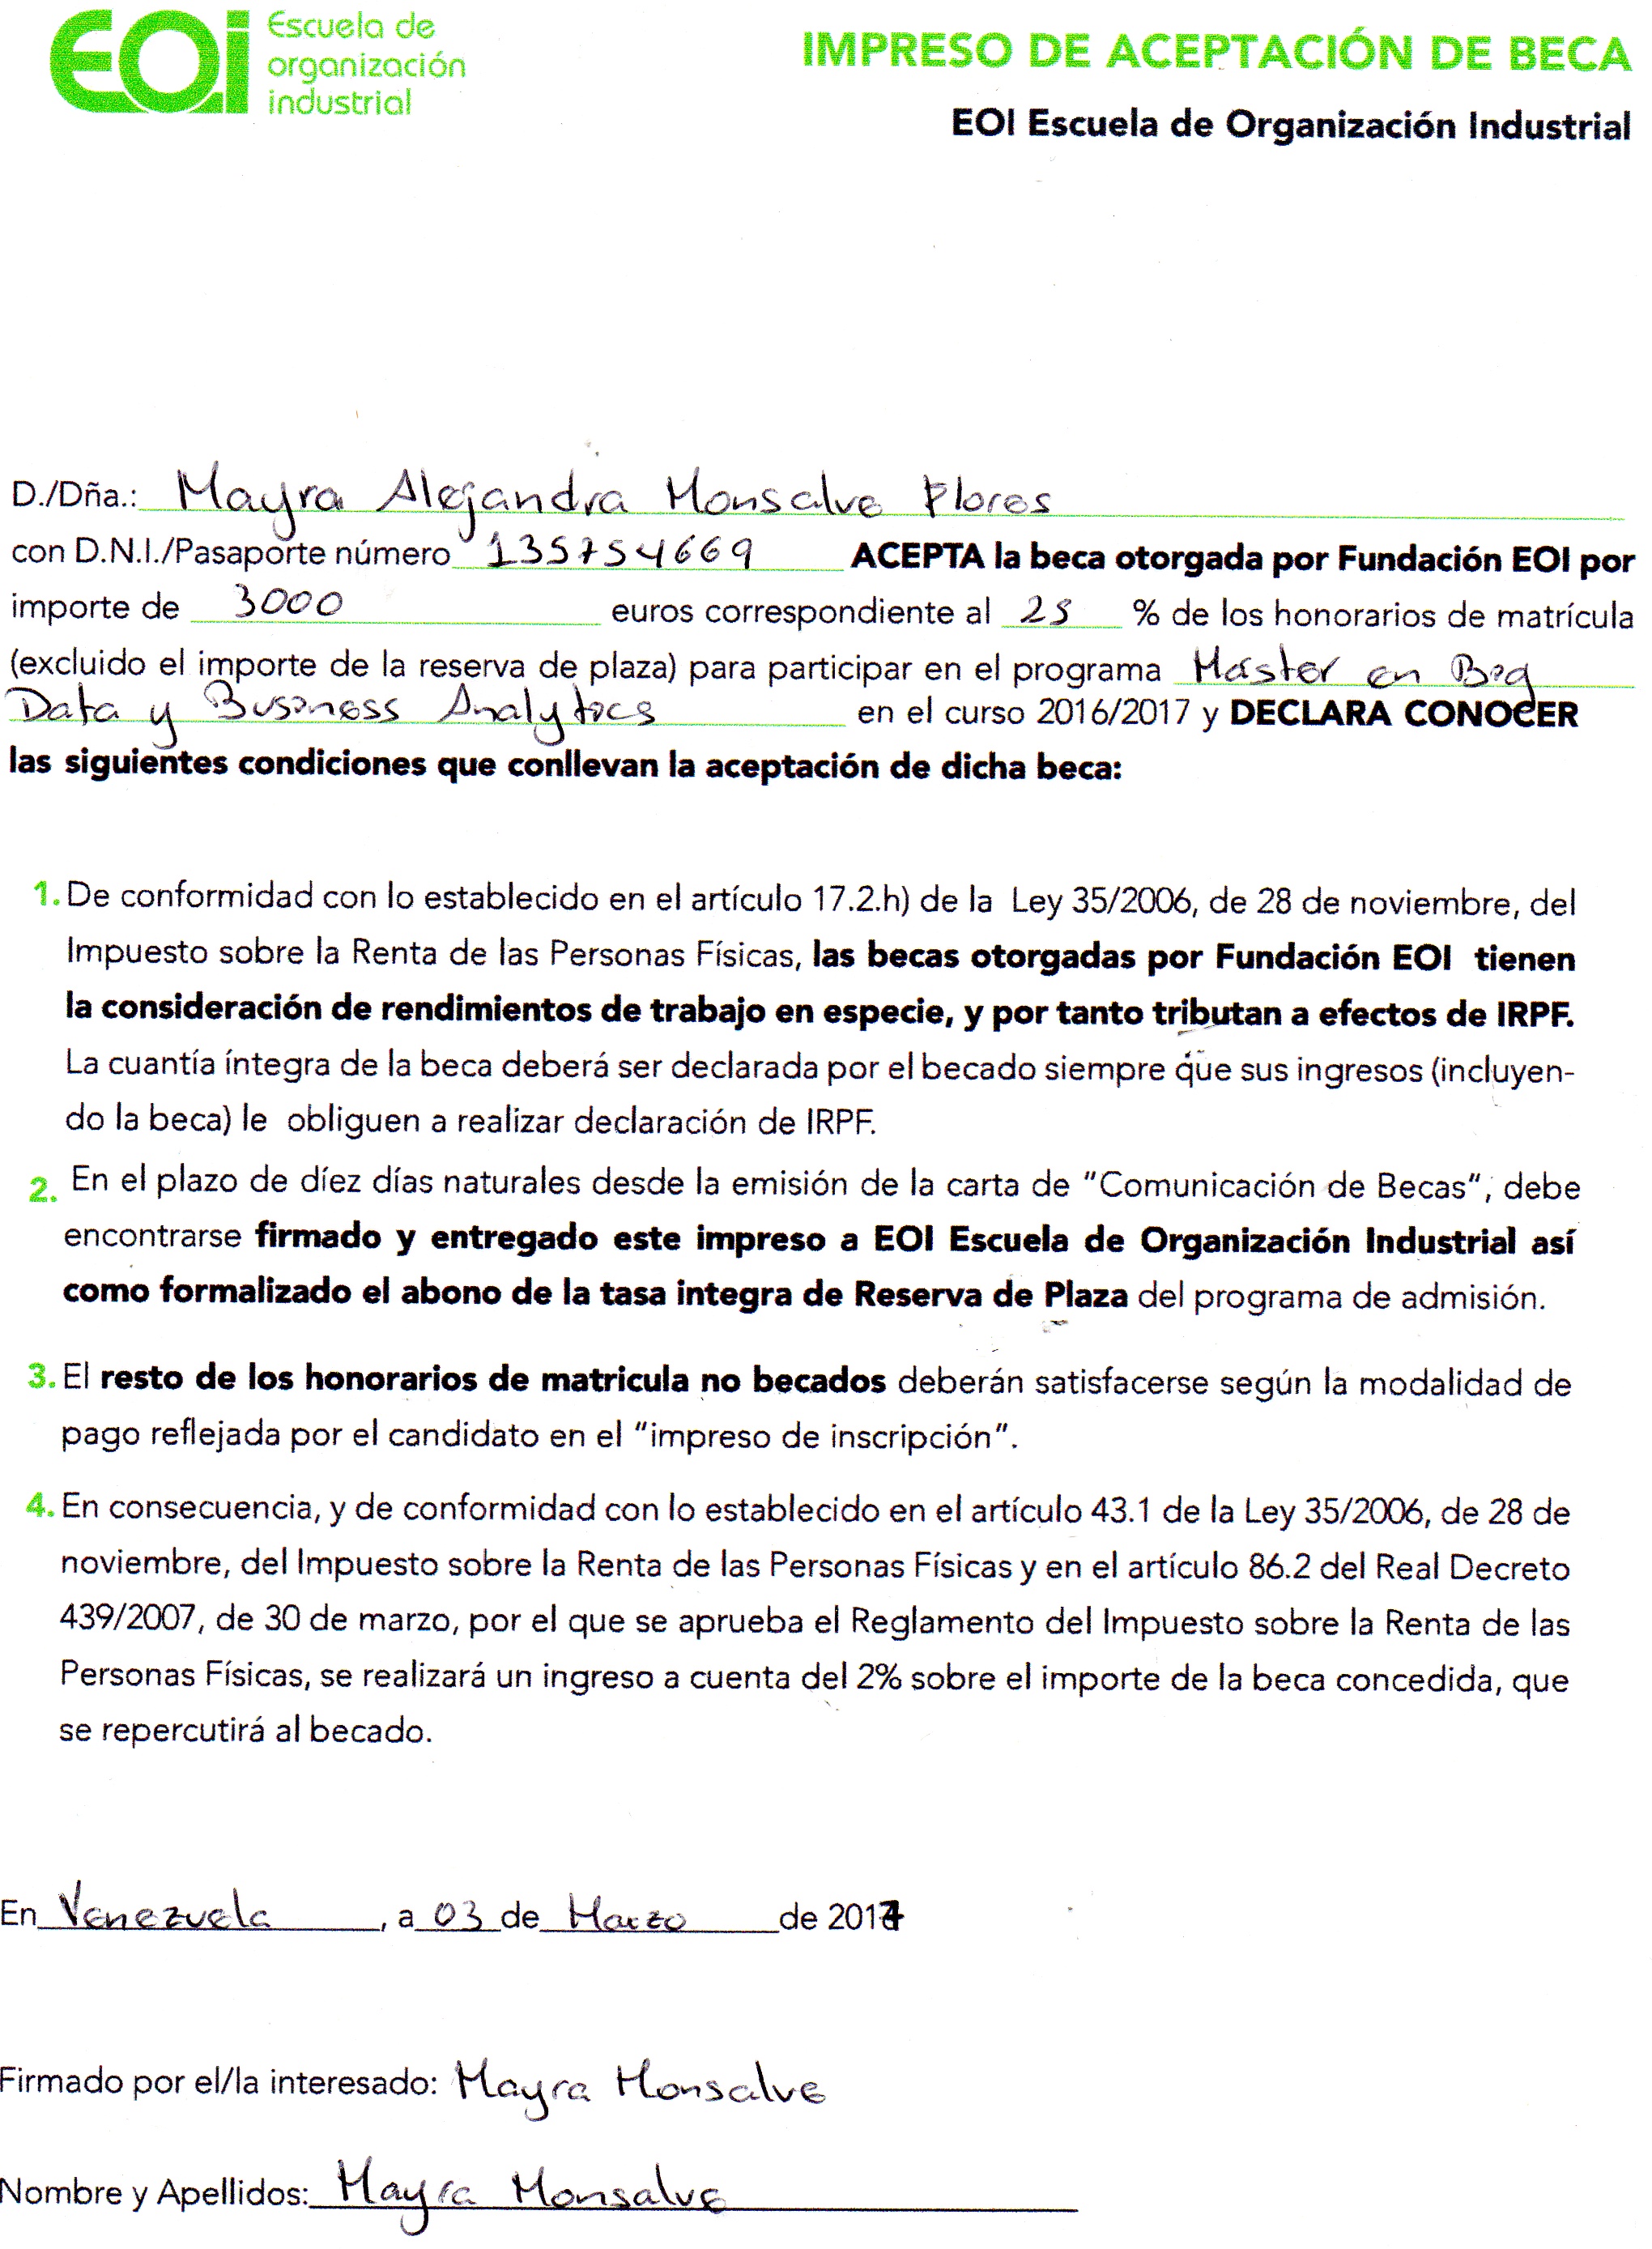 EOI Escuela de
organización
industrial
IMPRESO DE ACEPTACIÓN DE BECA
EOI Escuela de Organización Industrial
D./Dña.: Mayra Alejandra Monsalve Flores
con D.N.I./Pasaporte número 135754669 ACEPTA la beca otorgada por Fundación EOI por
importe de 3000 euros correspondiente al 25 % de los honorarios de matrícula
(excluido el importe de la reserva de plaza) para participar en el programa Máster en Big
Data y Business Analytics en el curso 2016/2017 y DECLARA CONOCER
las siguientes condiciones que conllevan la aceptación de dicha beca:
1. De conformidad con lo establecido en el artículo 17.2.h) de la Ley 35/2006, de 28 de noviembre, del
Impuesto sobre la Renta de las Personas Físicas, las becas otorgadas por Fundación EOI tienen
la consideración de rendimientos de trabajo en especie, y por tanto tributan a efectos de IRPF.
La cuantía íntegra de la beca deberá ser declarada por el becado siempre que sus ingresos (incluyen-
do la beca) le obliguen a realizar declaración de IRPF.
2. En el plazo de díez días naturales desde la emisión de la carta de "Comunicación de Becas", debe
encontrarse firmado y entregado este impreso a EOI Escuela de Organización Industrial así
como formalizado el abono de la tasa integra de Reserva de Plaza del programa de admisión.
3. El resto de los honorarios de matricula no becados deberán satisfacerse según la modalidad de
pago reflejada por el candidato en el "impreso de inscripción".
4. En consecuencia, y de conformidad con lo establecido en el artículo 43.1 de la Ley 35/2006, de 28 de
noviembre, del Impuesto sobre la Renta de las Personas Físicas y en el artículo 86.2 del Real Decreto
439/2007, de 30 de marzo, por el que se aprueba el Reglamento del Impuesto sobre la Renta de las
Personas Físicas, se realizará un ingreso a cuenta del 2% sobre el importe de la beca concedida, que
se repercutirá al becado.
En Venezuela, a 03 de Marzo de 2017
Firmado por el/la interesado: Mayra Monsalve
Nombre y Apellidos: Mayra Monsalve